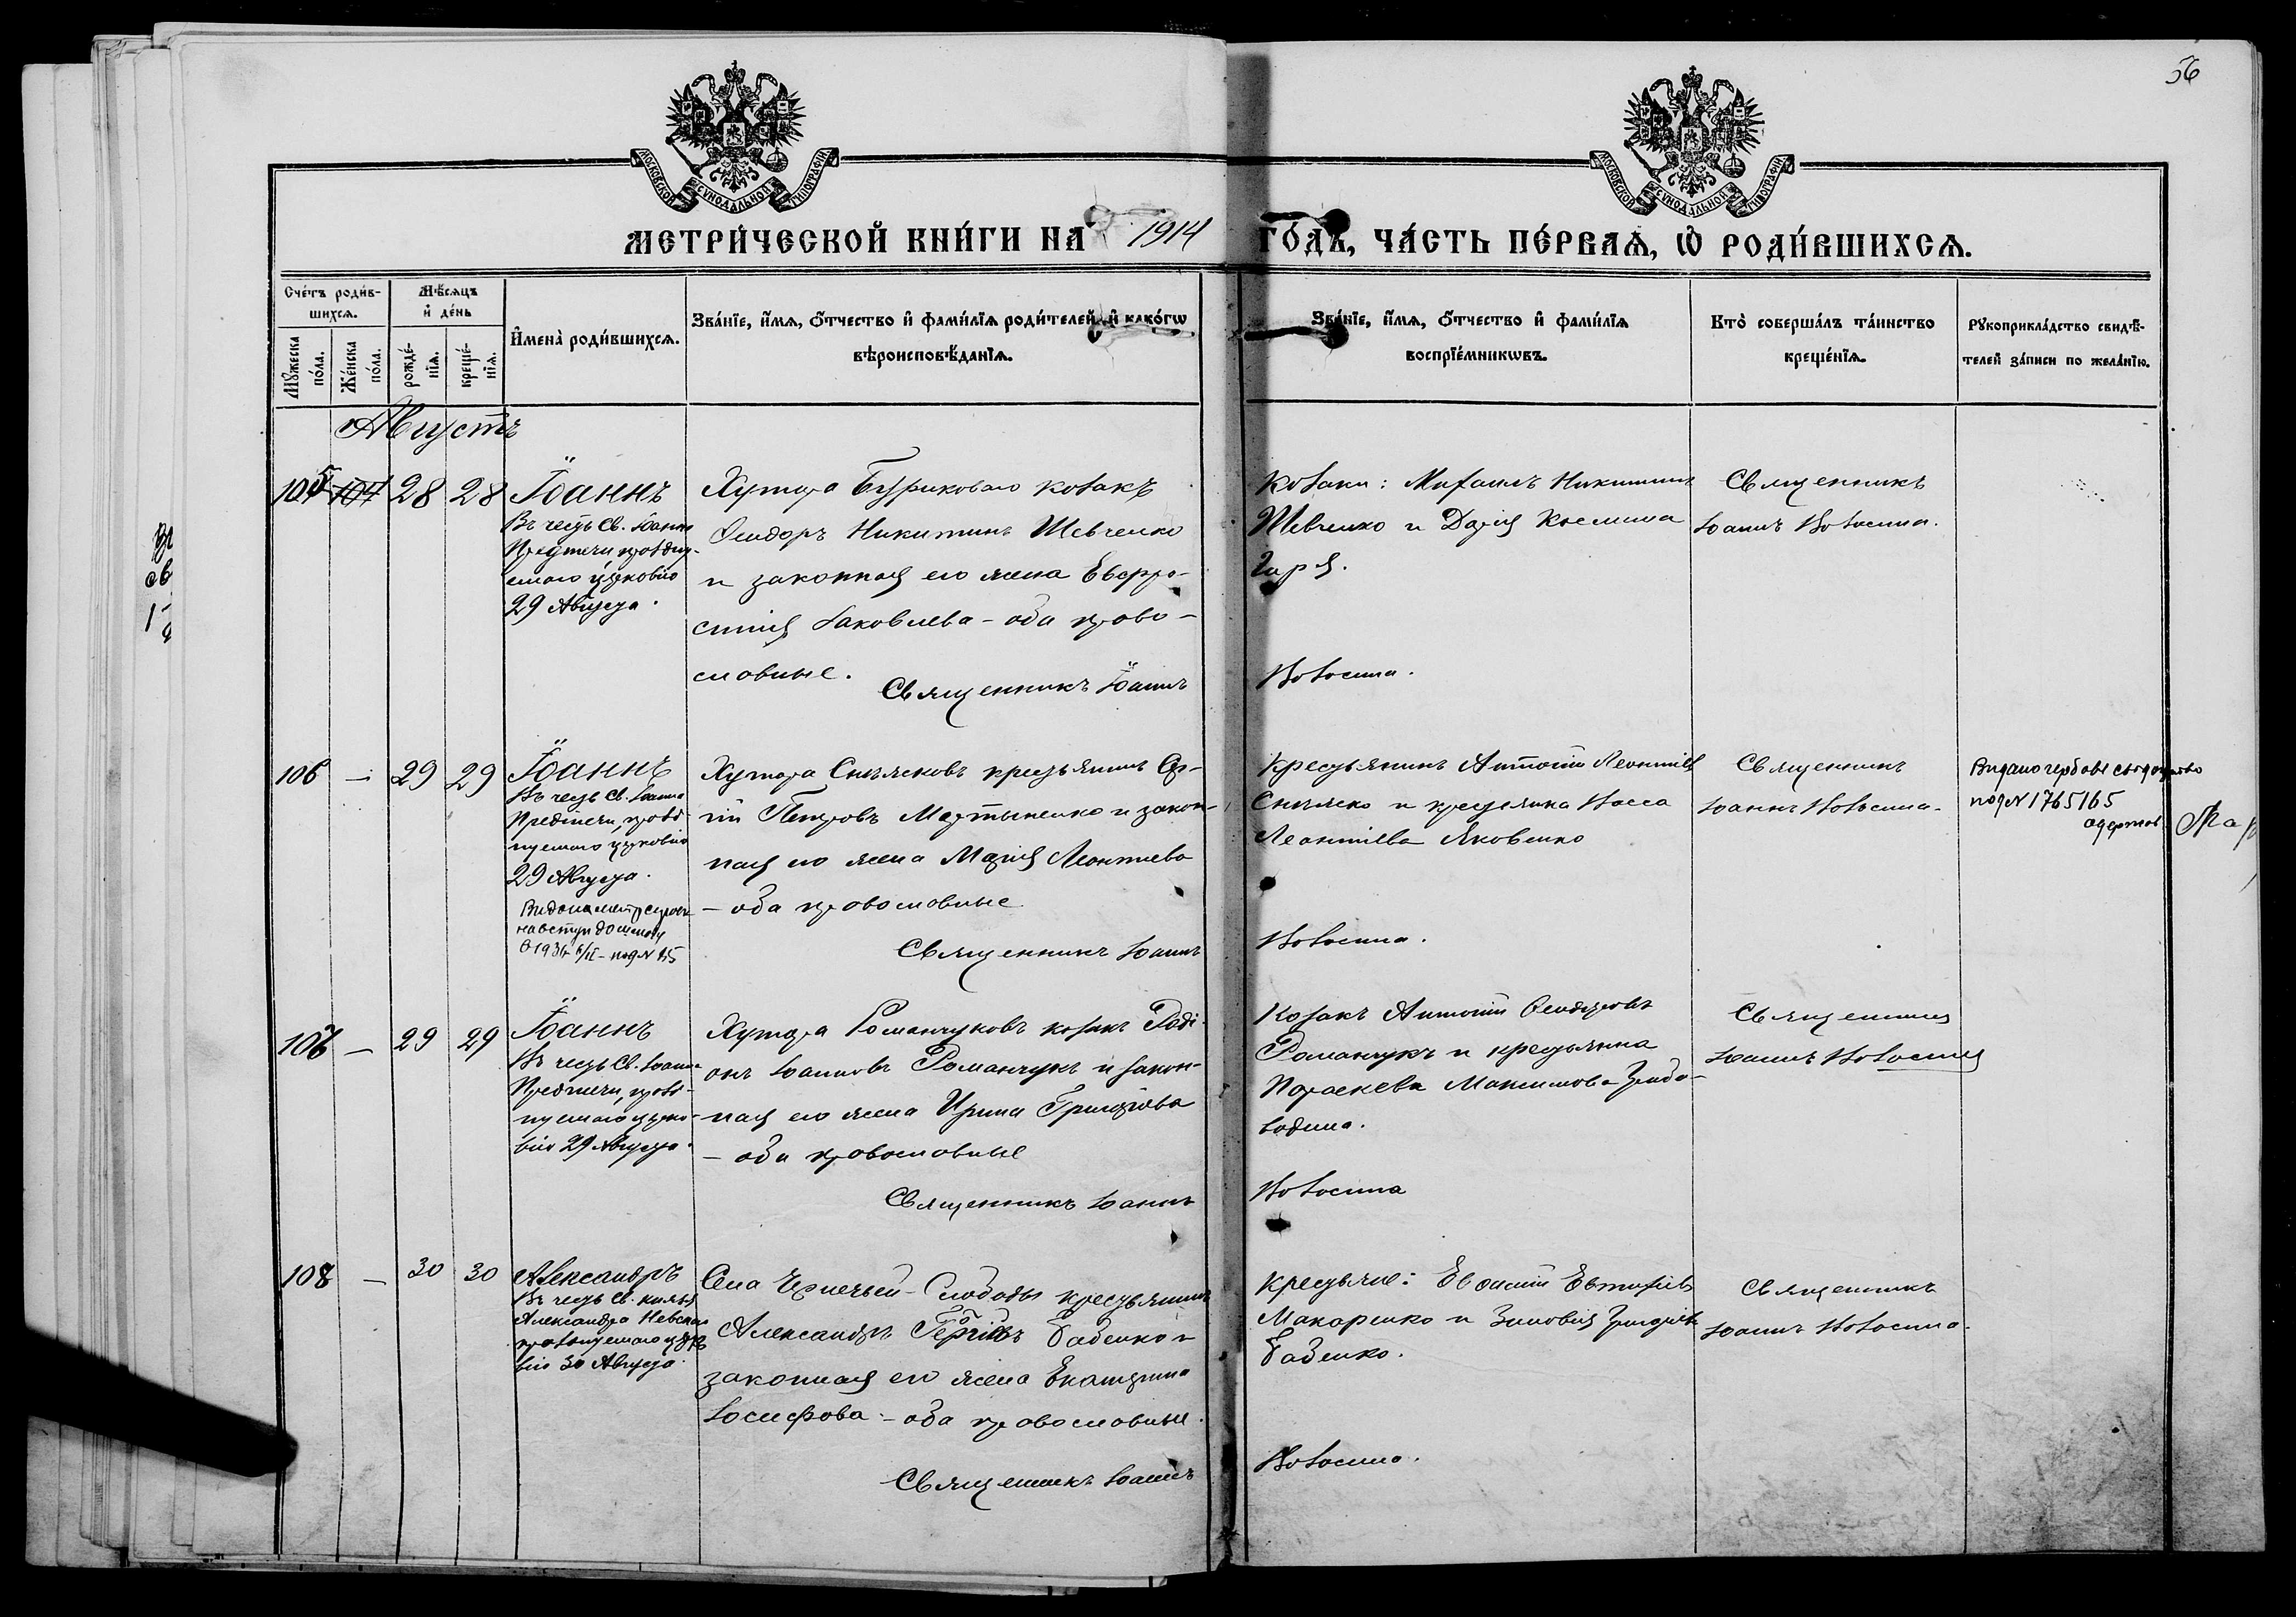 56
МОСКОВСКОЙ СѴНОДАЛЬНОЙ ТИПОГРАФІИ
МОСКОВСКОЙ СѴНОДАЛЬНОЙ ТИПОГРАФІИ
МЕТРИ́ЧЕСКОЙ КНИ́ГИ НА 1914 ГО́ДЪ, ЧА́СТЬ ПЕ́РВАѦ, Ѡ РОДИ́ВШИХСѦ.
Сче́тъ роди́в-
шихсѧ.
Мꙋжеска по́ла.
Же́нска по́ла.
Мѣ́сѧцъ
и де́нь
рожде́-
нїѧ.
креще́-
нїѧ.
Имена̀ роди́вшихсѧ.
Зва́нїе, и́мѧ, о́тчество и фами́лїѧ роди́телей, и како́гѡ
вѣроисповѣ́данїѧ.
Зва́нїе, и́мѧ, о́тчество и фами́лїѧ
воспрїе́мникѡвъ.
Кто̀ соверша́лъ та́инство
креще́нїѧ.
Рꙋкоприкла́дство свидѣ́-
телей за́писи по жела́нїю.
Августъ
105 104 28 28
Іоаннъ
Въ честь Св. Іоанна
Предтечи, праздну-
емаго церковію
29 Августа.
Хутора Бурикового козакъ
Феодоръ Никитинъ Шевченко
и законная его жена Евфро-
синія Іаковлева - оба право-
славные.
Священникъ Іоаннъ
Козаки: Михаилъ Никитинъ
Шевченко и Дарія Космина
Новосина.
Священникъ
Іоаннъ Новосина.
106 — 29 29
Іоаннъ
Въ честь Св. Іоанна
Предтечи, празд-
нуемаго церковію
29 Августа.
под № 115
Хутора крестьянинъ
Петровъ Мартыненко и закон-
ная его жена Марія Леонтіева
— оба православные
Священникъ Іоаннъ
Крестьянинъ Антоній Леонтіев
и крестьянка
Леонтіева Яковенко
Новосина.
Священникъ
Іоаннъ Новосина.
Видано гербове свідоцтво
под № 1765165
одержав
107 — 29 29
Іоаннъ
Въ честь Св. Іоанна
Предтечи, празд-
нуемаго церко-
вію 29 Августа.
Хутора Романчуковъ козакъ Роді-
онъ Іоанновъ Романчукъ и закон-
ная его жена Ирина Григоріева
— оба православные
Священникъ Іоаннъ
Козакъ Антоній Феодоровъ
Романчукъ и крестьянка
Параскева Максимова
Новосина
Священникъ
Іоаннъ Новосина
108 — 30 30
Александръ
Въ честь Св. князя
Александра Невскаго
празднуемаго церко-
вію 30 Августа.
Села Чернечьей-Слободы крестьянинъ
Александръ Бабенко и
законная его жена Екатерина
Іосифова - оба православные.
Священникъ Іоаннъ
Крестьяне:
Макаренко и Зиновія Григоріева
Бабенко.
Новосина.
Священникъ
Іоаннъ Новосина.